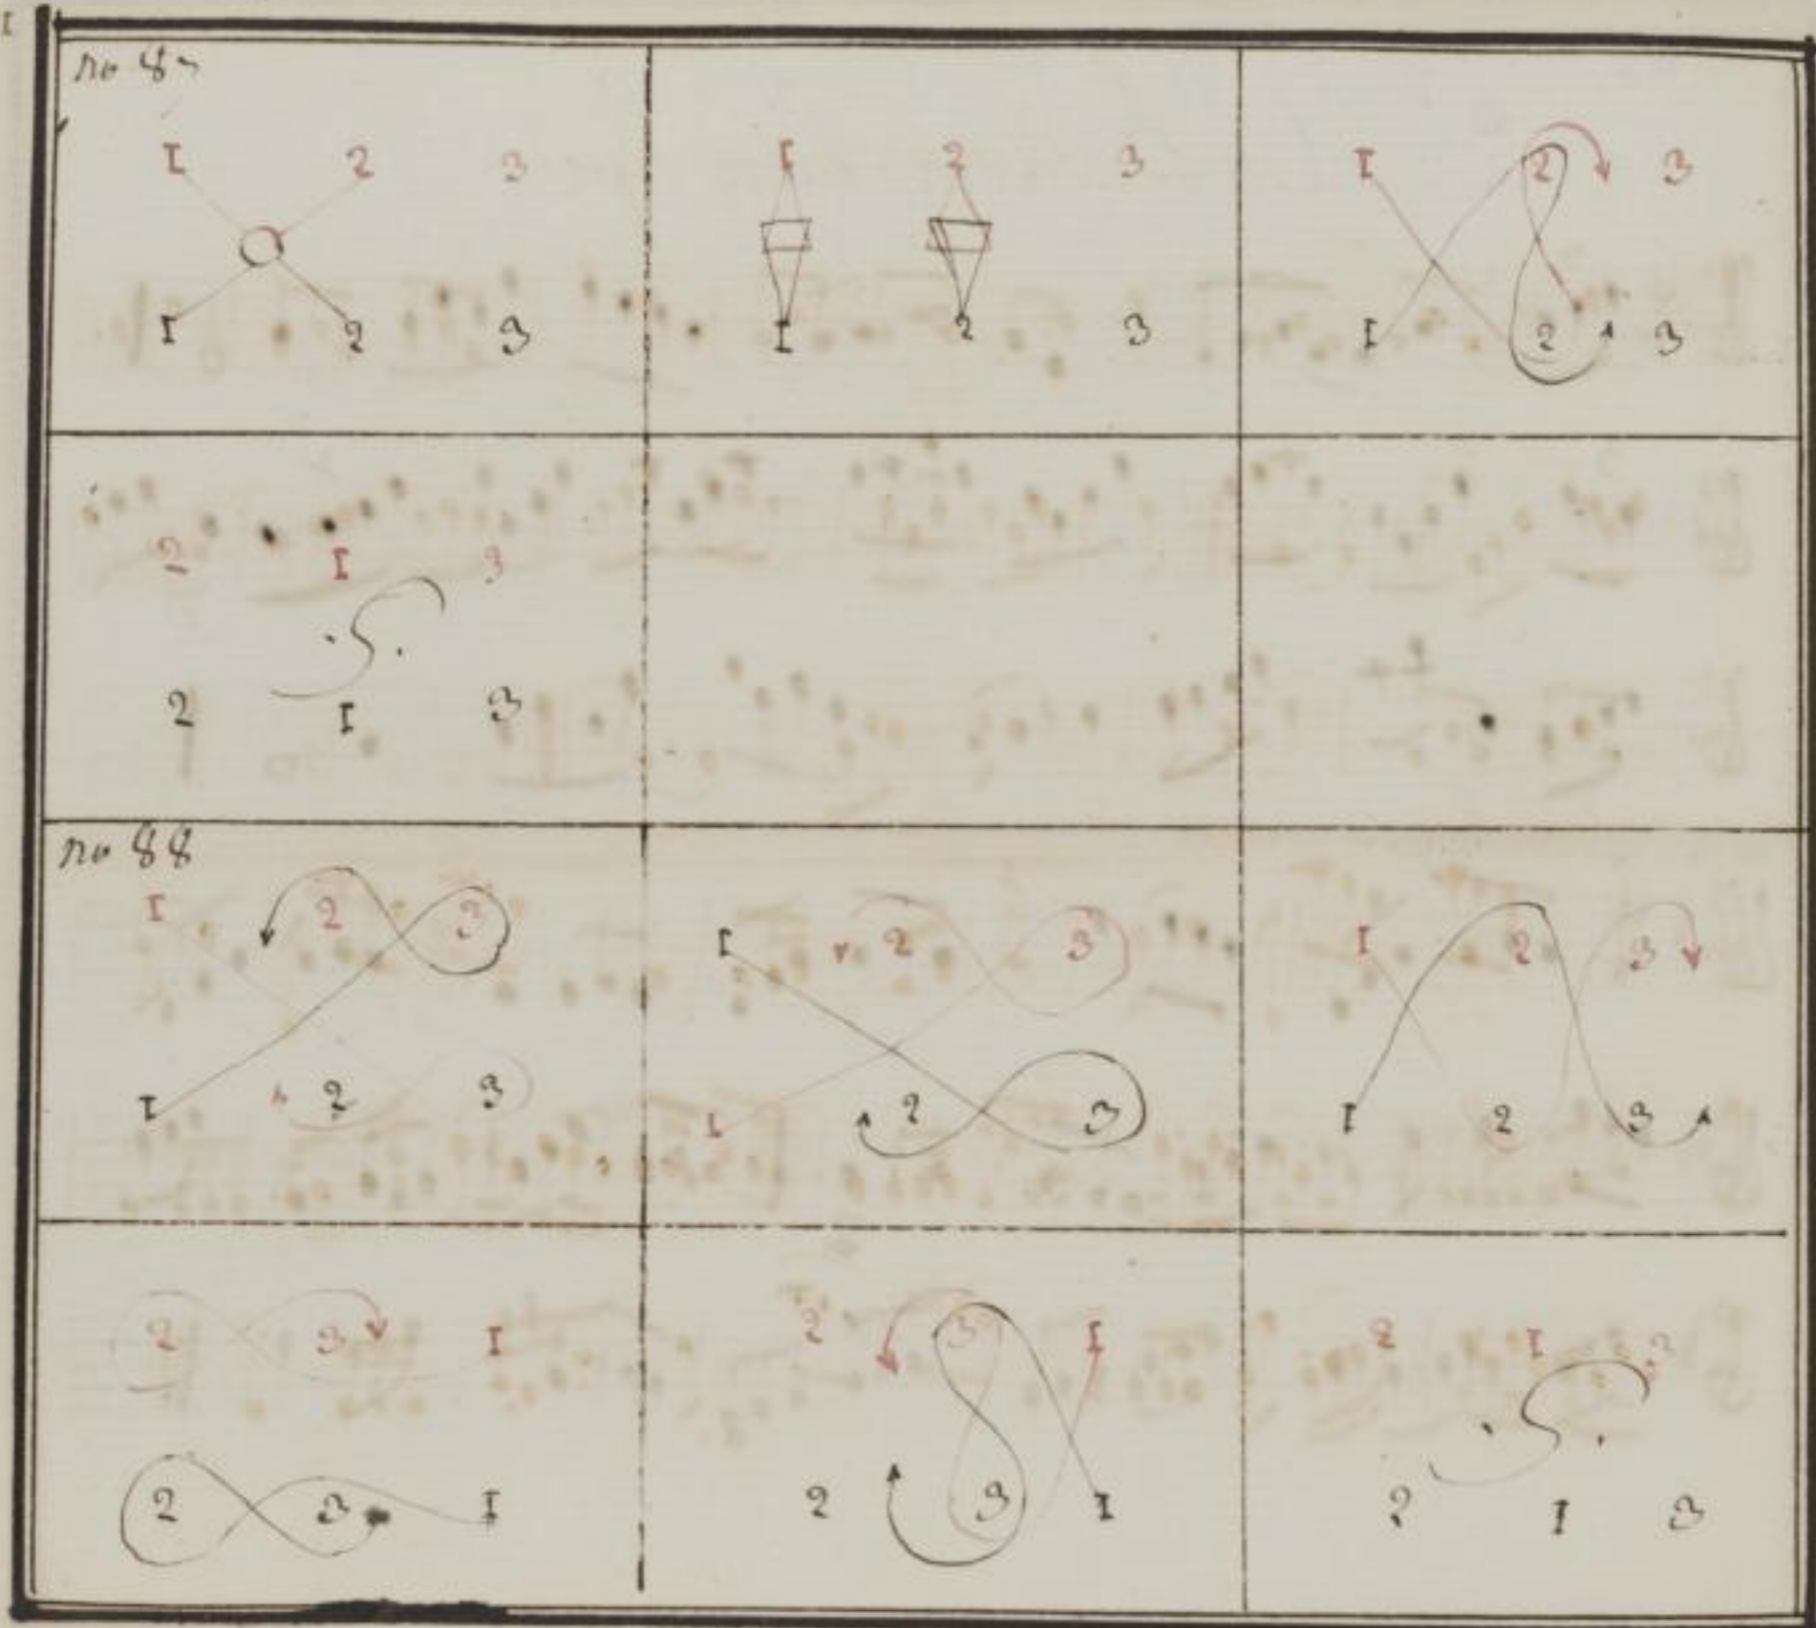 no 87
1 2 3
1 2 3
1 2 3
1 2 3
1 2 3
1 2 3
2 1 3
.S.
2 1 3
no 88
1 2 3
1 2 3
1 2 3
1 2 3
1 2 3
1 2 3
2 3 1
2 3 1
2 3 1
2 3 1
2 1 3
.S.
2 1 3